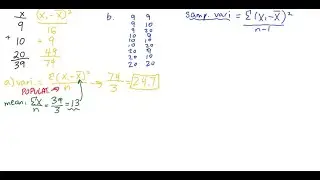 x (x₁ - x̄)²
9 16
+ 10 + 9
20 49
39 74
a) vari = Σ(x₁-x̄)² / n → 74 / 3 = 24.7
POPULAT.
mean: Σx / n = 39 / 3 = 13
b. 9 9
9 10
9 20
10 9
10 10
10 20
20 9
20 10
20 20
samp. vari = Σ(x₁ - x̄)² / n-1